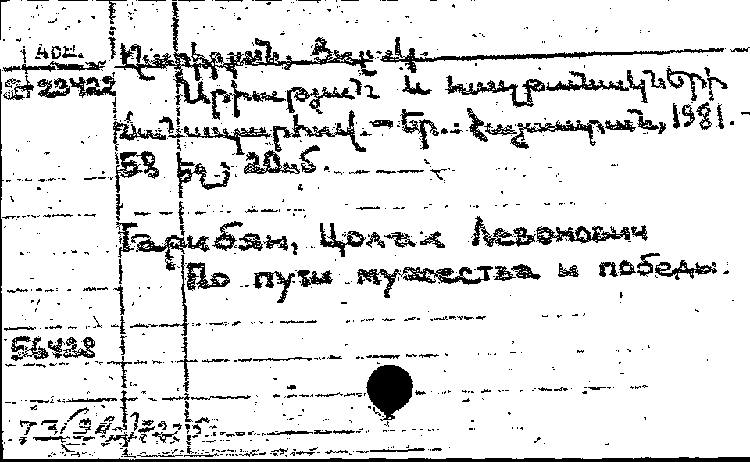 Арм.
Ղարիբյան, Ցոլակ.
2-23422 Արիության և հաղթանակների
ճանապարհով. — Եր.: Հայաստան, 1981. —
58 էջ; 20սմ.
Гарибян, Цолак Левонович
По пути мужества и победы.
56428